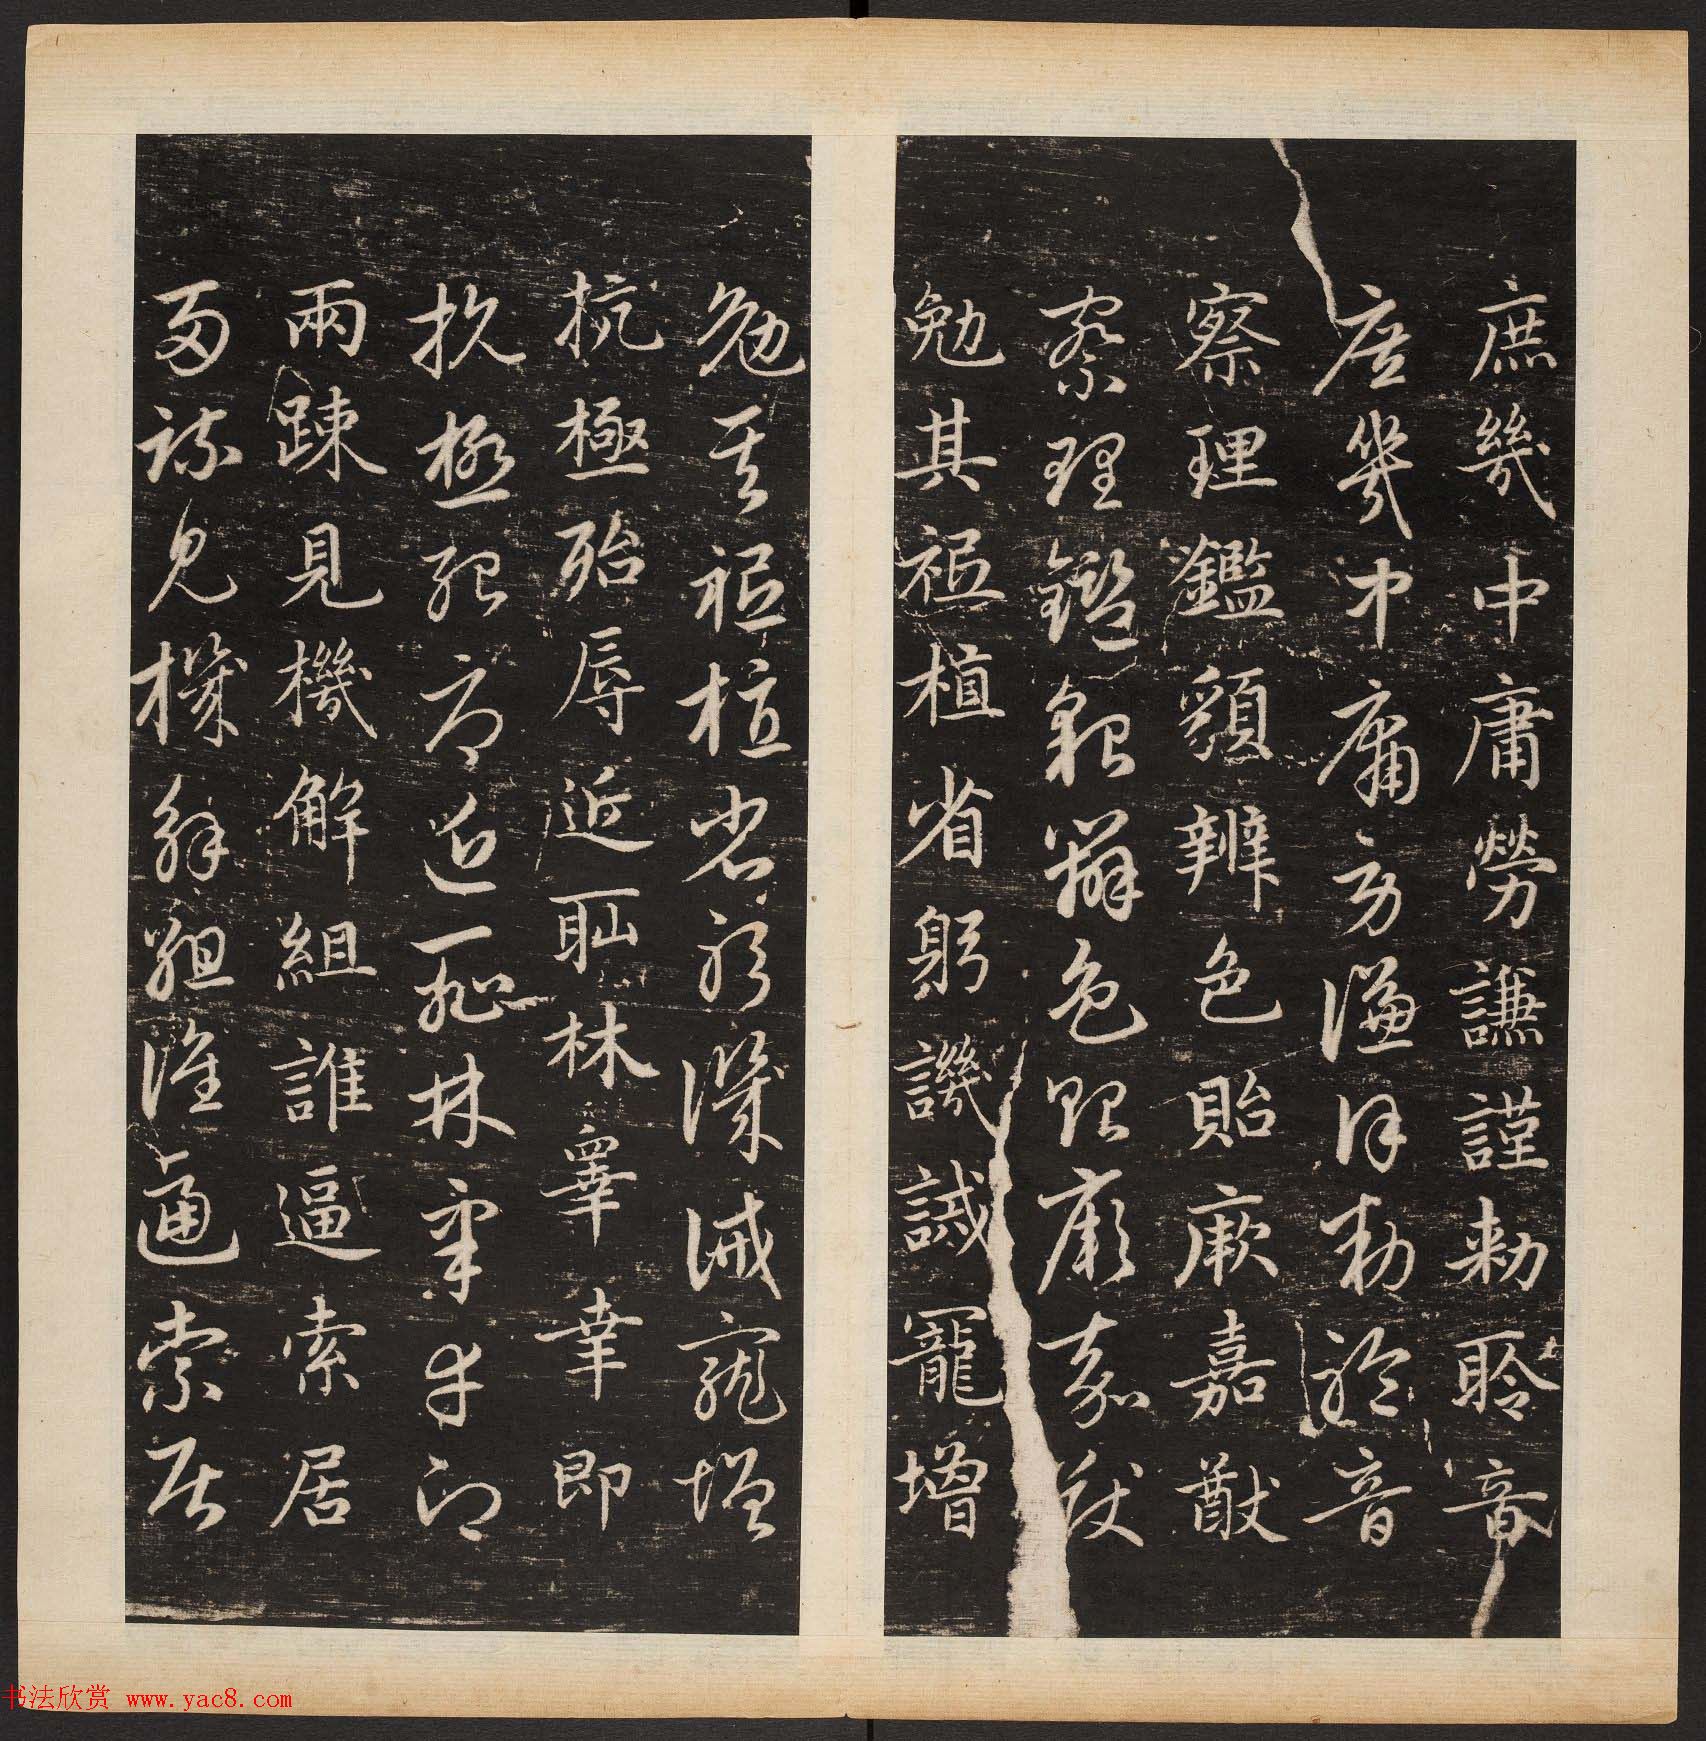 庶幾中庸勞謙謹勅聆音
庶幾中庸勞謙謹勅聆音
察理鑑貌辨色貽厥嘉猷
察理鑑貌辨色貽厥嘉猷
勉其祗植省躬譏誡寵增
勉其祗植省躬譏誡寵增
抗極殆辱近耻林皋幸即
抗極殆辱近耻林皋幸即
兩踈見機解組誰逼索居
兩踈見機解組誰逼索居
书法欣赏 www.yac8.com